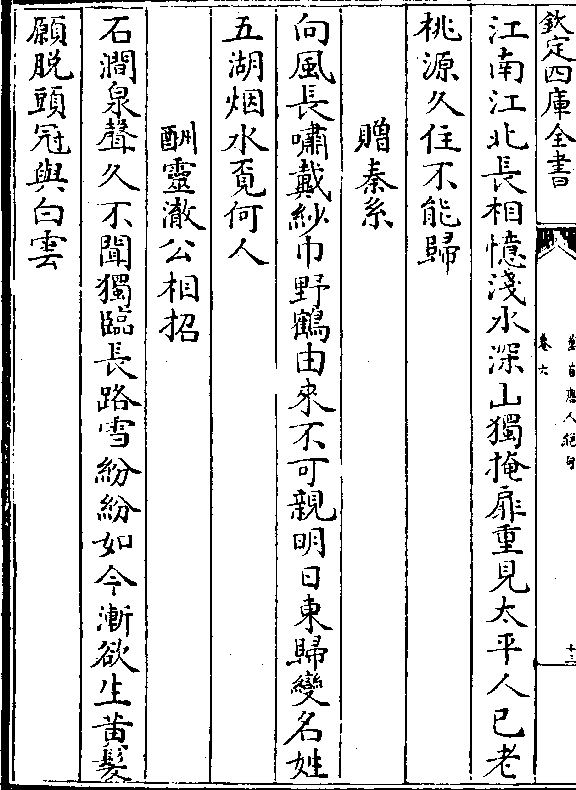 欽定四庫全書
萬首唐人絕句
卷六
十三
江南江北長相憶淺水深山獨掩扉重見太平人已老
桃源久住不能歸
贈秦系
向風長嘯戴紗巾野鶴由來不可親明日東歸變名姓
五湖烟水覔何人
酬靈澈公相招
石澗泉聲久不聞獨臨長路雪紛紛如今漸欲生黃髮
願脫頭冠與白雲